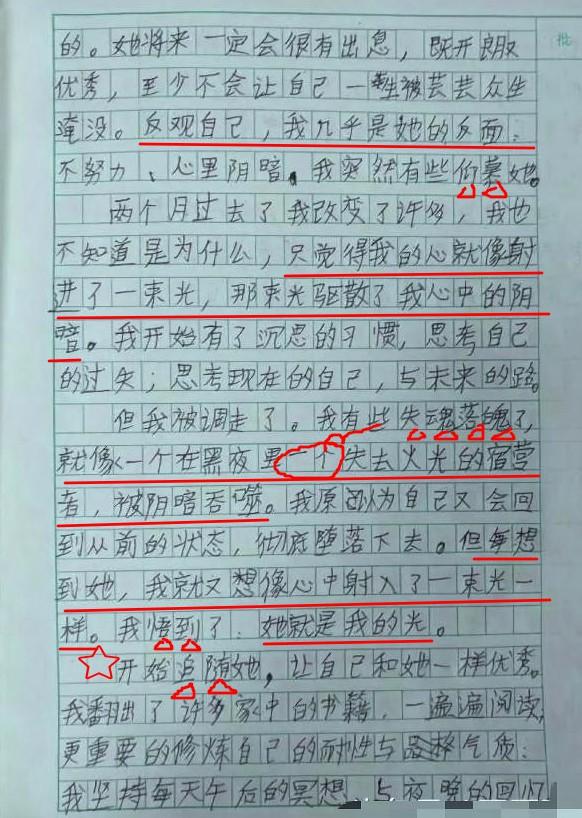 的。她将来一定会很有出息，既开朗又
批
优秀，至少不会让自己一生被芸芸众生
淹没。反观自己，我几乎是她的反面：
不努力、心里阴暗。我突然有些仰慕她。
两个月过去了我改变了许多，我也
不知道是为什么，只觉得我的心就像射
进了一束光，那束光驱散了我心中的阴
暗。我开始有了沉思的习惯，思考自己
的过失；思考现在的自己，与未来的路。
但我被调走了。我有些失魂落魄了，
就像一个在黑夜里一个失去火光的宿营
者，被阴暗吞噬。我原以为自己又会回
到从前的状态，彻底堕落下去。但每想
到她，我就又想像心中射入了一束光一
样。我悟到了：她就是我的光。
开始追随她，让自己和她一样优秀。
我翻出了许多家中的书籍，一遍遍阅读，
更重要的修炼自己的耐性与气质：
我坚持每天午后的冥想，与夜晚的回忆